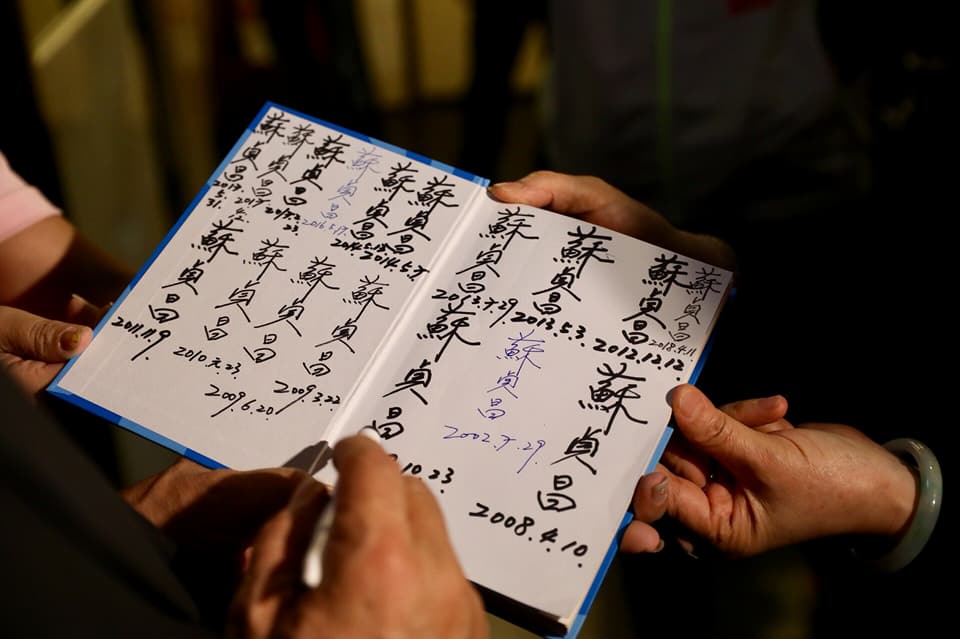 蘇貞昌
31.
蘇貞昌
蘇貞昌
23.
蘇貞昌
2016.5.19.
蘇貞昌
2014.5.13
蘇貞昌
2014.5.7.
蘇貞昌
2011.11.9.
蘇貞昌
2010.元.23.
蘇貞昌
2009.6.20.
蘇貞昌
2009.3.22.
蘇貞昌
2013.5.29
蘇貞昌
2013.5.3.
蘇貞昌
2012.12.12.
蘇貞昌
2018.4.11.
蘇貞昌
10.23.
蘇貞昌
2002.5.29.
蘇貞昌
2008.4.10.